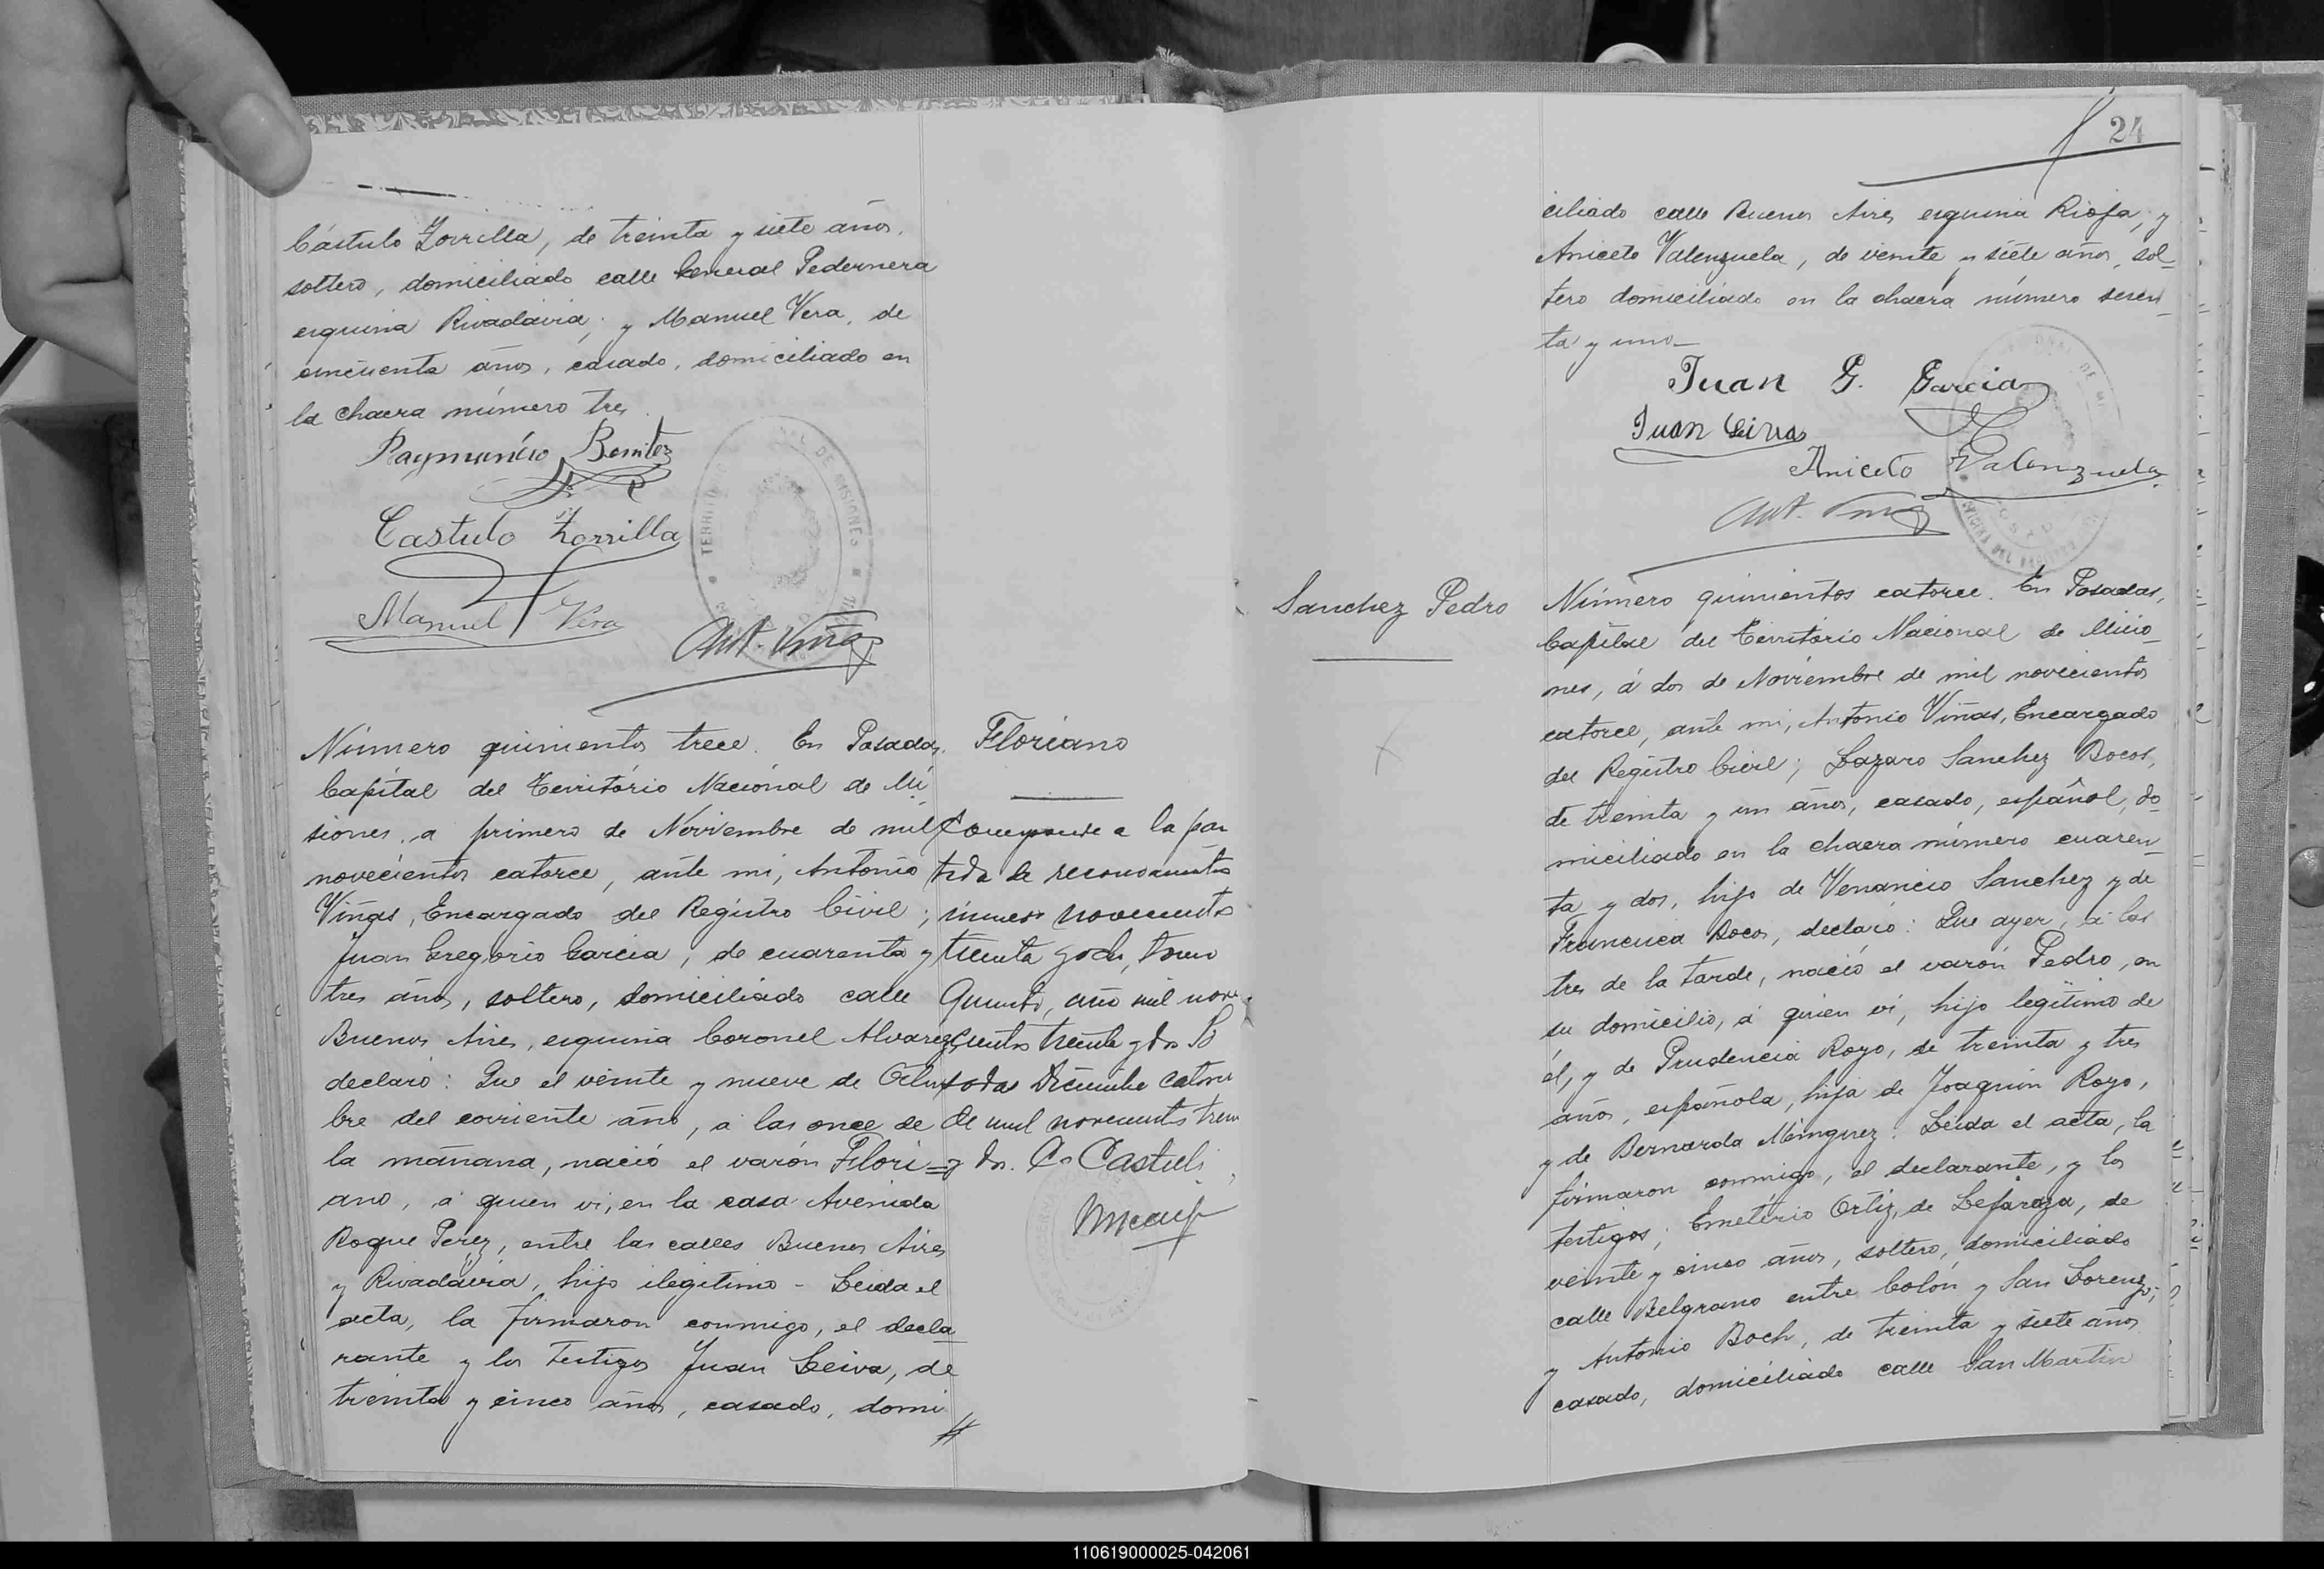 Cástulo Zorrilla, de treinta y siete años,
soltero, domiciliado calle General Pedernera
esquina Rivadavia; y Manuel Vera, de
cincuenta años, casado, domiciliado en
la chacra número tres.
Raymundo Benitez
Castulo Zorrilla
Manuel Vera
Ant. Viñas
TERRITORIO NACIONAL DE MISIONES
Número quinientos trece. En Posadas,
Capital del Território Nacional de Mi-
siones, a primero de Noviembre de mil
novecientos catorce, ante mi, Antonio
Viñas, Encargado del Registro Civil;
Juan Gregorio Garcia, de cuarenta y
tres años, soltero, domiciliado calle
Buenos Aires, esquina Coronel Alvarez,
declaró: Que el veinte y nueve de Octu-
bre del corriente año, a las once de
la mañana, nació el varón Flori=
ano, á quien vi, en la casa Avenida
Roque Perez, entre las calles Buenos Aires
y Rivadavia, hijo ilegitimo - Leida el
acta, la firmaron conmigo, el decla-
rante y los testigos Juan Leiva, de
treinta y cinco años, casado, domi
Floriano
Corresponde a la par
tida de reconocimientos
número novecientos
treinta y ocho, tomo
Quinto, año mil nove
cientos treinta y dos Po
sadas Diciembre catorce
de mil novecientos trein
y dos.
24
ciliado calle Buenos Aires esquina Rioja, y
Aniceto Valenzuela, de veinte y siete años, sol-
tero domiciliado en la chacra número sesen-
ta y uno_
Juan G. Garcia
Juan Leivas
Aniceto Valenzuela
Ant. Viñas
Sanchez Pedro
Número quinientos catorce. En Posadas,
Capital del Território Nacional de Misio-
nes, á dos de Noviembre de mil novecientos
catorce, ante mi, Antonio Viñas, Encargado
del Registro Civil; Lazaro Sanchez Bocos,
de treinta y un años, casado, español, do
miciliado en la chacra número cuaren-
ta y dos, hijo de Venancio Sanchez y de
Francisca Bocos, declaró: Que ayer, á las
tres de la tarde, nació el varón Pedro, en
su domicilio, á quien vi, hijo legítimo de
él, y de Prudencia Royo, de treinta y tres
años, española, hija de Joaquin Royo,
y de Bernarda Minguez. Leida el acta, la
firmaron conmigo, el declarante, y los
testigos; Emetério Ortiz, de Lejaraza, de
veinte y cinco años, soltero, domiciliado
calle Belgrano entre Colón y San Lorenzo;
y Antonio Boch, de treinta y siete años
casado, domiciliado calle San Martin
110619000025-042061